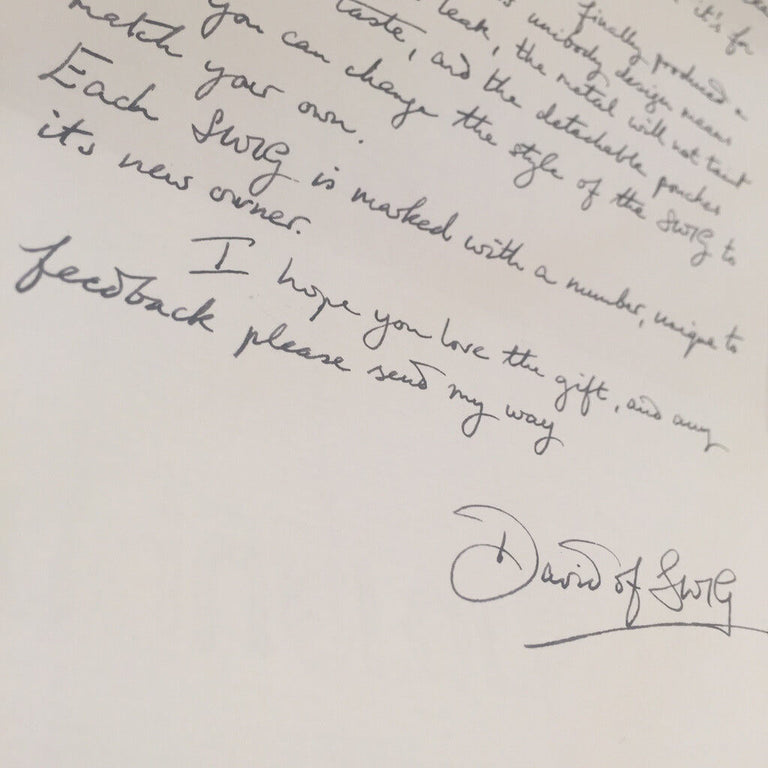 it's
finally produced a
unibody design means
leak, the metal will not taint
taste, and the detachable pouches
you can change the style of the SWIG to
match your own.
Each SWIG is marked with a number, unique to
it's new owner.
I hope you love the gift, and any
feedback please send my way
David of SWIG